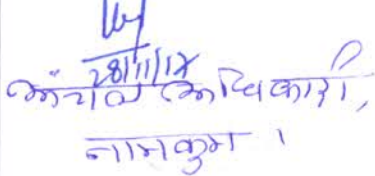 28/11/17
अंचल अधिकारी,
नामकुम ।